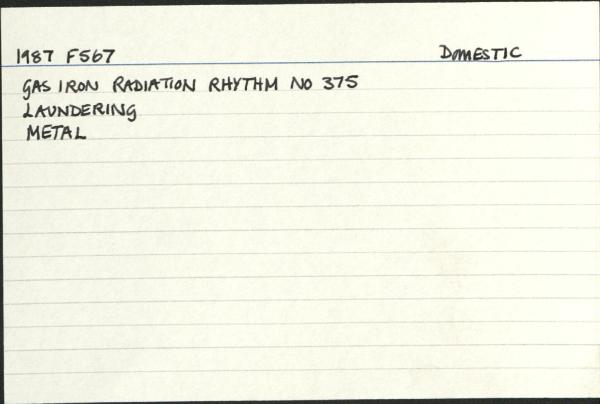 1987 F567 DOMESTIC
GAS IRON RADIATION RHYTHM NO 375
LAUNDERING
METAL